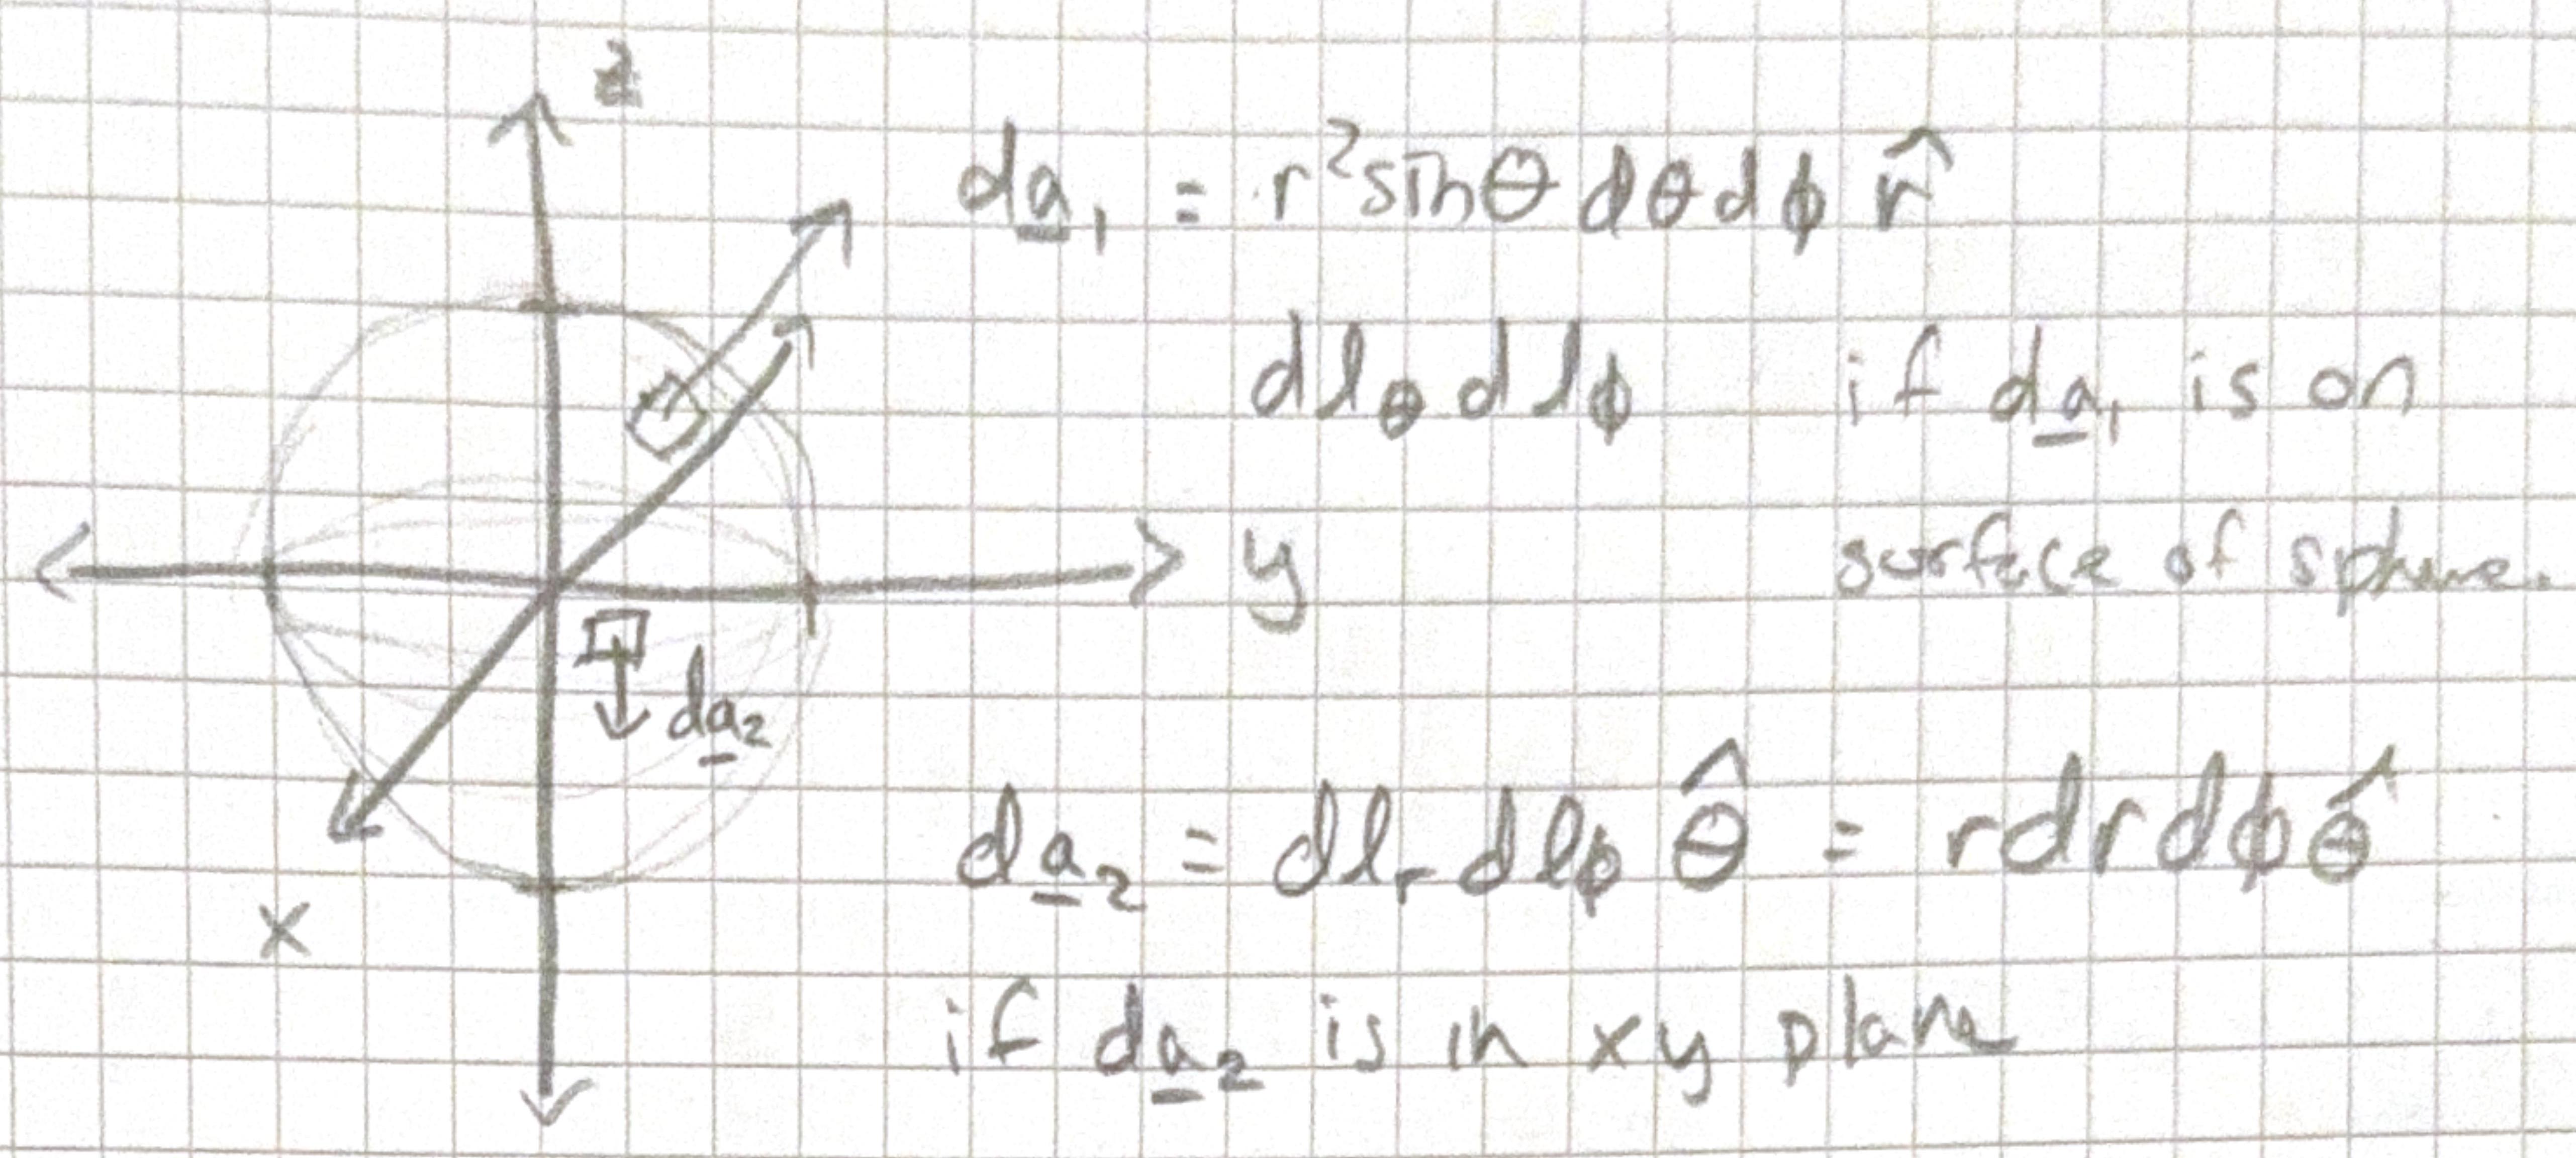 z
da̲₁ = r²sinθ dθ dϕ r̂
dlθ dlϕ if da̲₁ is on
surface of sphere.
y
da̲₂
da̲₂ = dlᵣ dlϕ θ̂ = r dr dϕ θ̂
x
if da̲₂ is in xy plane